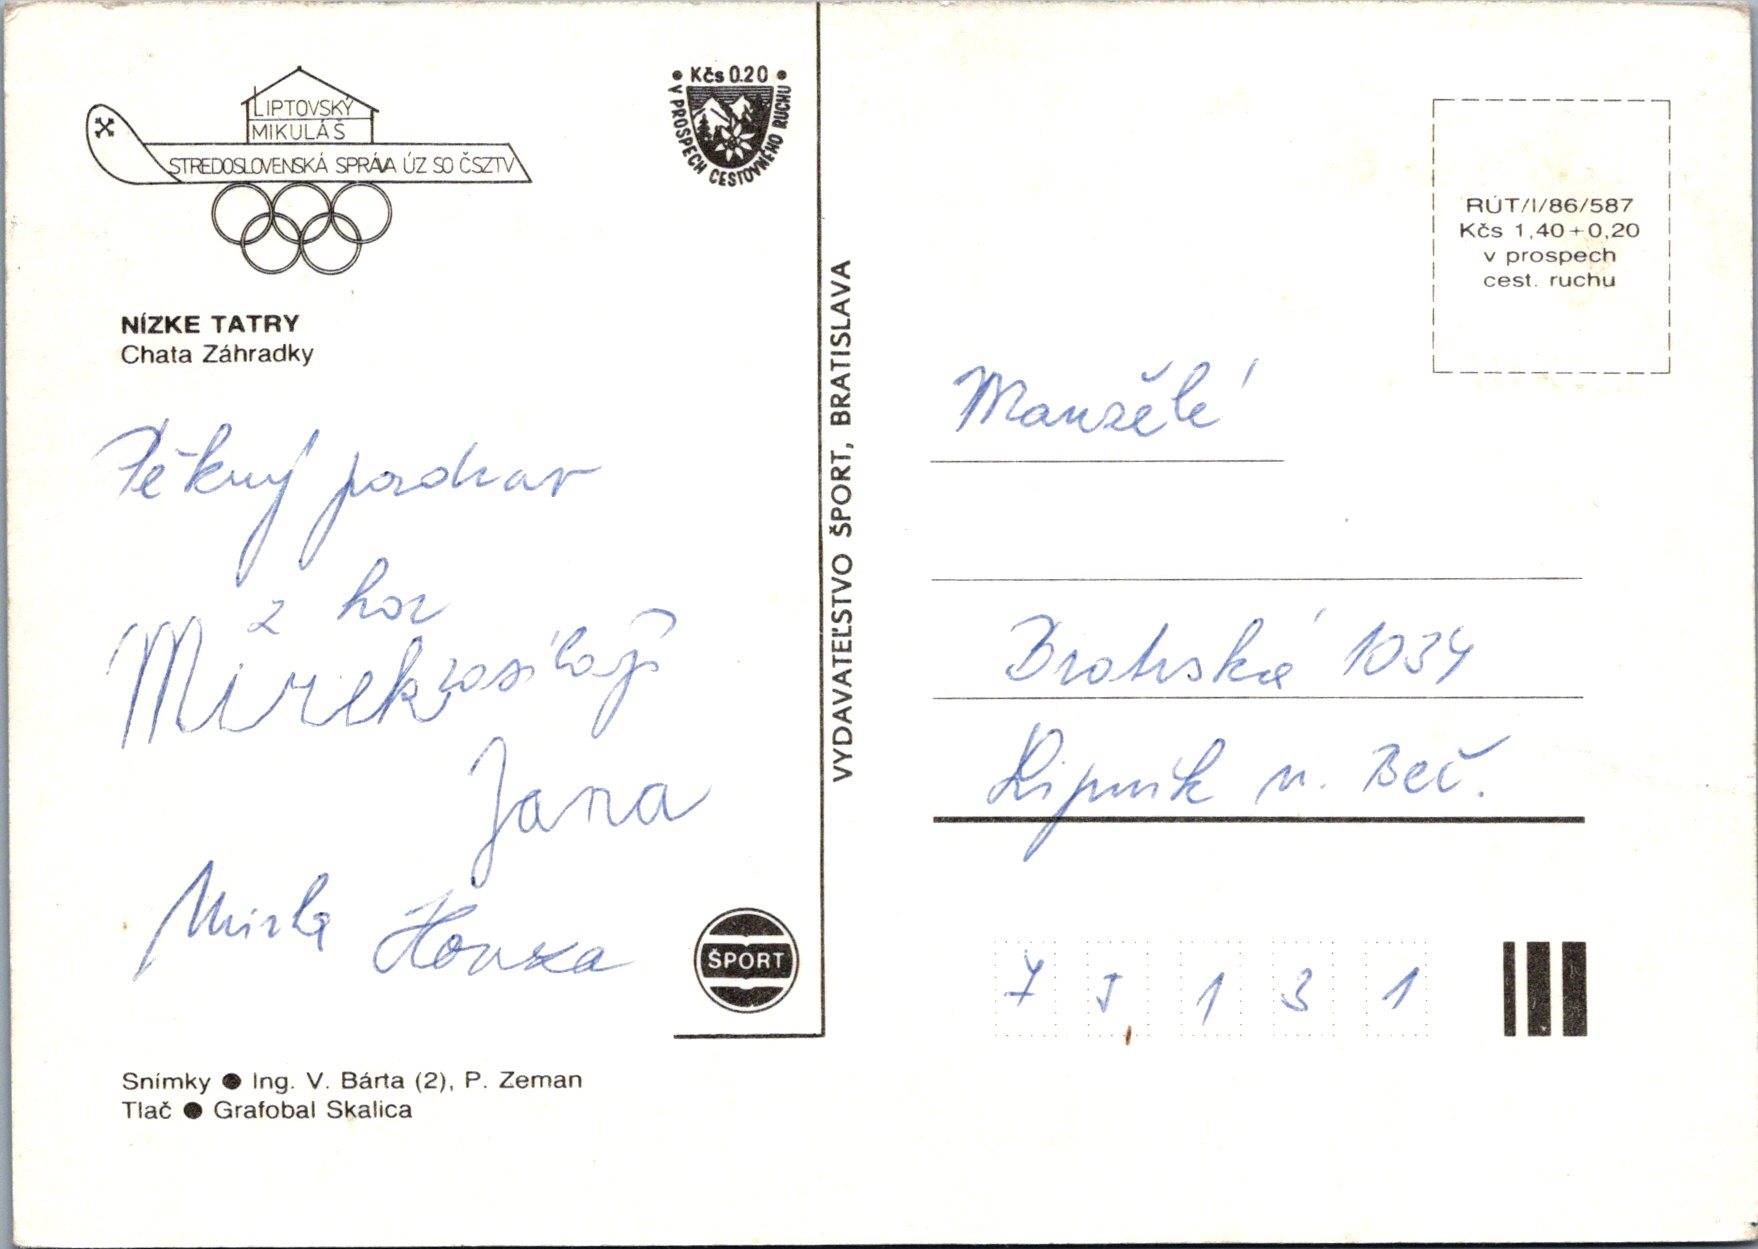 LIPTOVSKÝ
MIKULÁŠ
STREDOSLOVENSKÁ SPRÁVA ÚZ SO ČSZTV
• Kčs 0.20 •
V PROSPECH CESTOVNÉHO RUCHU
NÍZKE TATRY
Chata Záhradky
Pěkný pozdrav
z hor
Mirek zasílají
Jana
Mirka Honza
ŠPORT
Snímky ● Ing. V. Bárta (2), P. Zeman
Tlač ● Grafobal Skalica
VYDAVATEĽSTVO ŠPORT, BRATISLAVA
RÚT/I/86/587
Kčs 1,40+0,20
v prospech
cest. ruchu
Manželé
1034
Lipník n. Beč.
75131